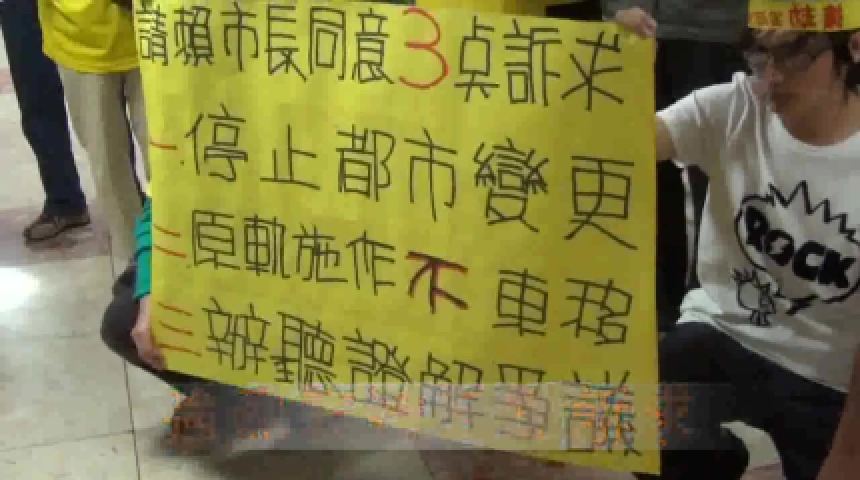 請賴市長同意3点訴求
一.停止都市變更
二.原軌施作不車移
三.辦聽證解爭議
ROCK